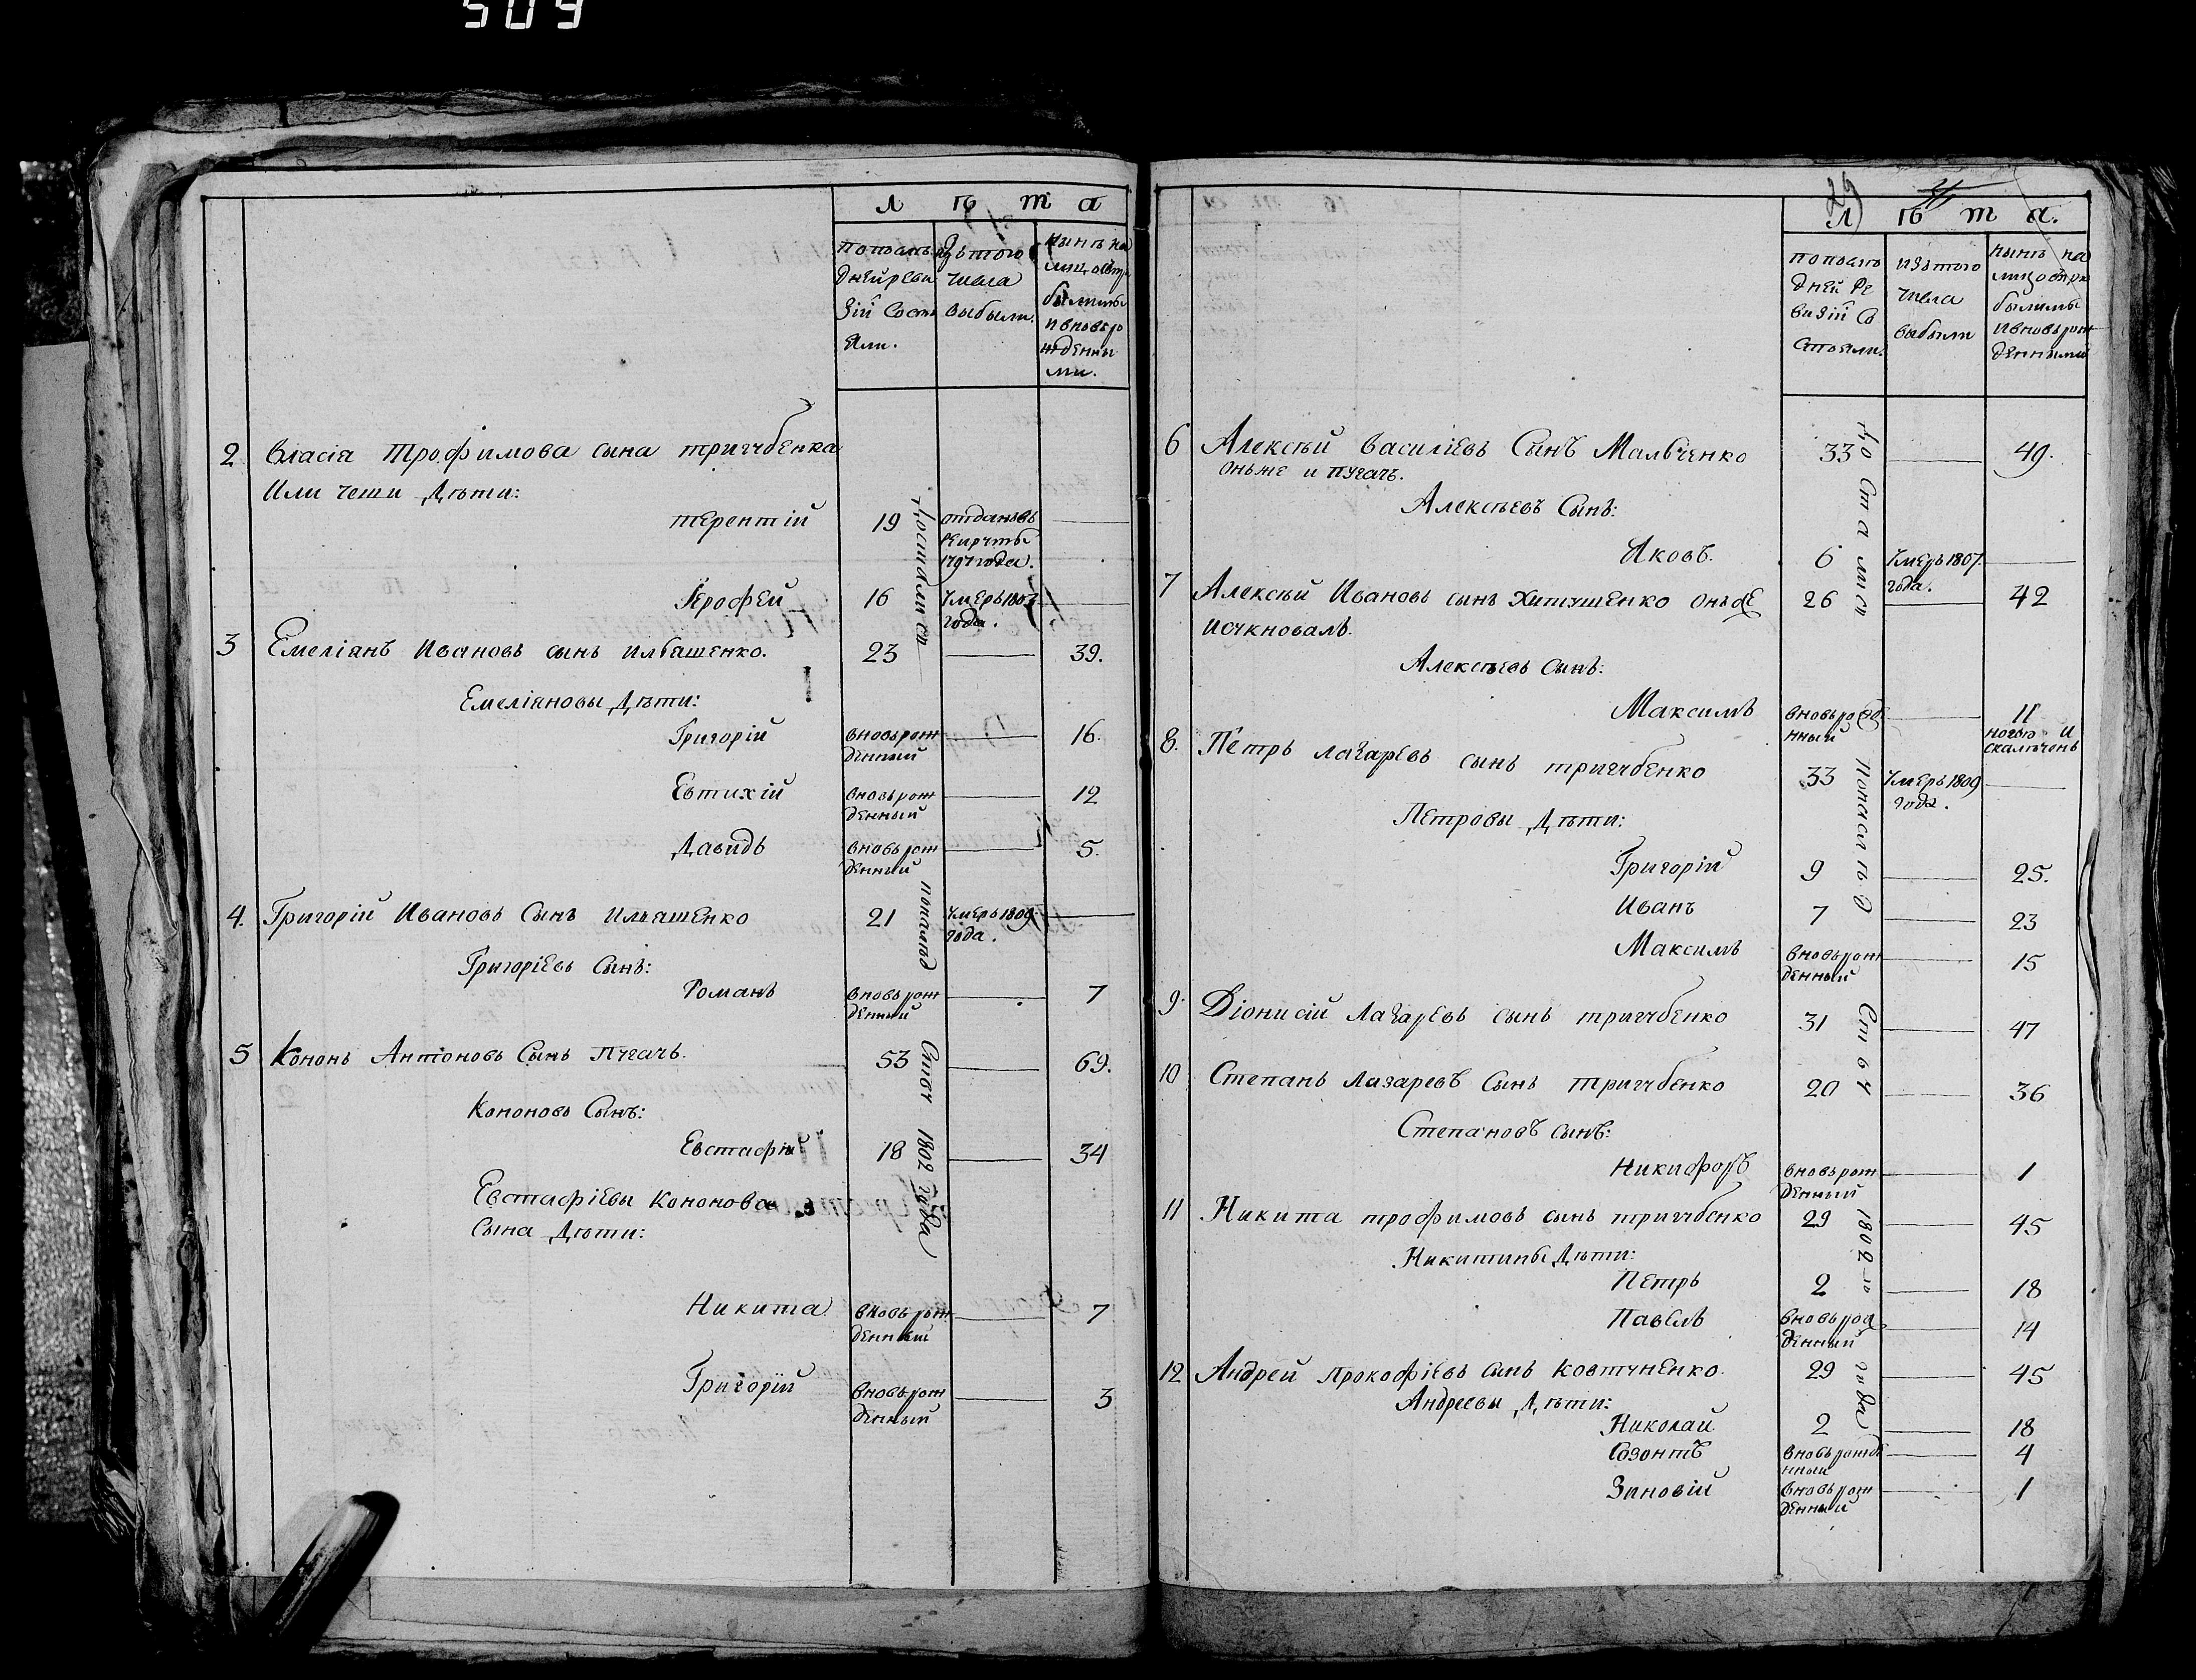 509
лѣта
попослѣ изътого нынѣ на
дней реви числа лицо остро
зій состо выбыли. былыми
яли. ивновьро
жденны
ми.
2 Власія Трофимова сына тригубенка
Или чеши Дѣти:
терентій 19 отданъвъ
рекруты
1797 года.
Ерофей 16 умеръ 1803
года.
3 Емеліянъ Ивановъ сынъ ильяшенко. 23 39.
Емеліяновы Дѣти:
Григорій вновьрож 16.
денный
Евтихій вновьрож 12
денный
Давидъ вновьрож 5.
денный
4. Григорій Ивановъ Сынъ ильяшенко 21 умеръ 1809
года.
Григоріевъ Сынъ:
Романъ вновьрож 7
денный
5 Кононъ Антоновъ Сынъ пугачь. 53 69.
Кононовъ Сынъ:
Евстафій 18 34
Евстафіевы Кононова
Сына Дѣти:
Никита вновьрож 7
денный
Григорій вновьрож 3
денный
Досталися
1802 года
29
лѣта.
попослѣ изътого нынѣ на
дней ре числа лицо
визій со выбыли былыми
стояли. ивновьрож
денными
6 Алексѣй Василіевъ Сынъ Мальченко 33 49.
онъже и пугачъ.
Алексѣевъ Сынъ:
Яковъ. 6 умеръ 1807.
года.
7 Алексѣй Ивановъ сынъ Хитушенко онъже 26 42
Алексѣевъ Сынъ:
Максимъ вновьрожде 11
нный ногою и
скалѣченъ
8. Петръ лазаревъ сынъ тригубенко 33 умеръ 1809
года.
Петровы Дѣти:
Григорій 9 25.
Иванъ 7 23
Максимъ вновьрож 15
денный
9. Діонисій Лазаревъ сынъ тригубенко 31 47
10 Степанъ Лазаревъ Сынъ тригубенко 20 36
Степановъ сынъ:
Никифоръ вновьрож 1
денный
11 Никита трофимовъ сынъ тригубенко 29 45
Никитины Дѣти:
Петръ 2 18
Павелъ вновьрож 14
денный
12 Андрей прокофіевъ сынъ ковтуненко. 29 45
Андреевы Дѣти:
Николай 2 18
Созонтъ вновьрожде 4
нный
Зиновій вновьрож 1
денный
Досталися
1802-го
года